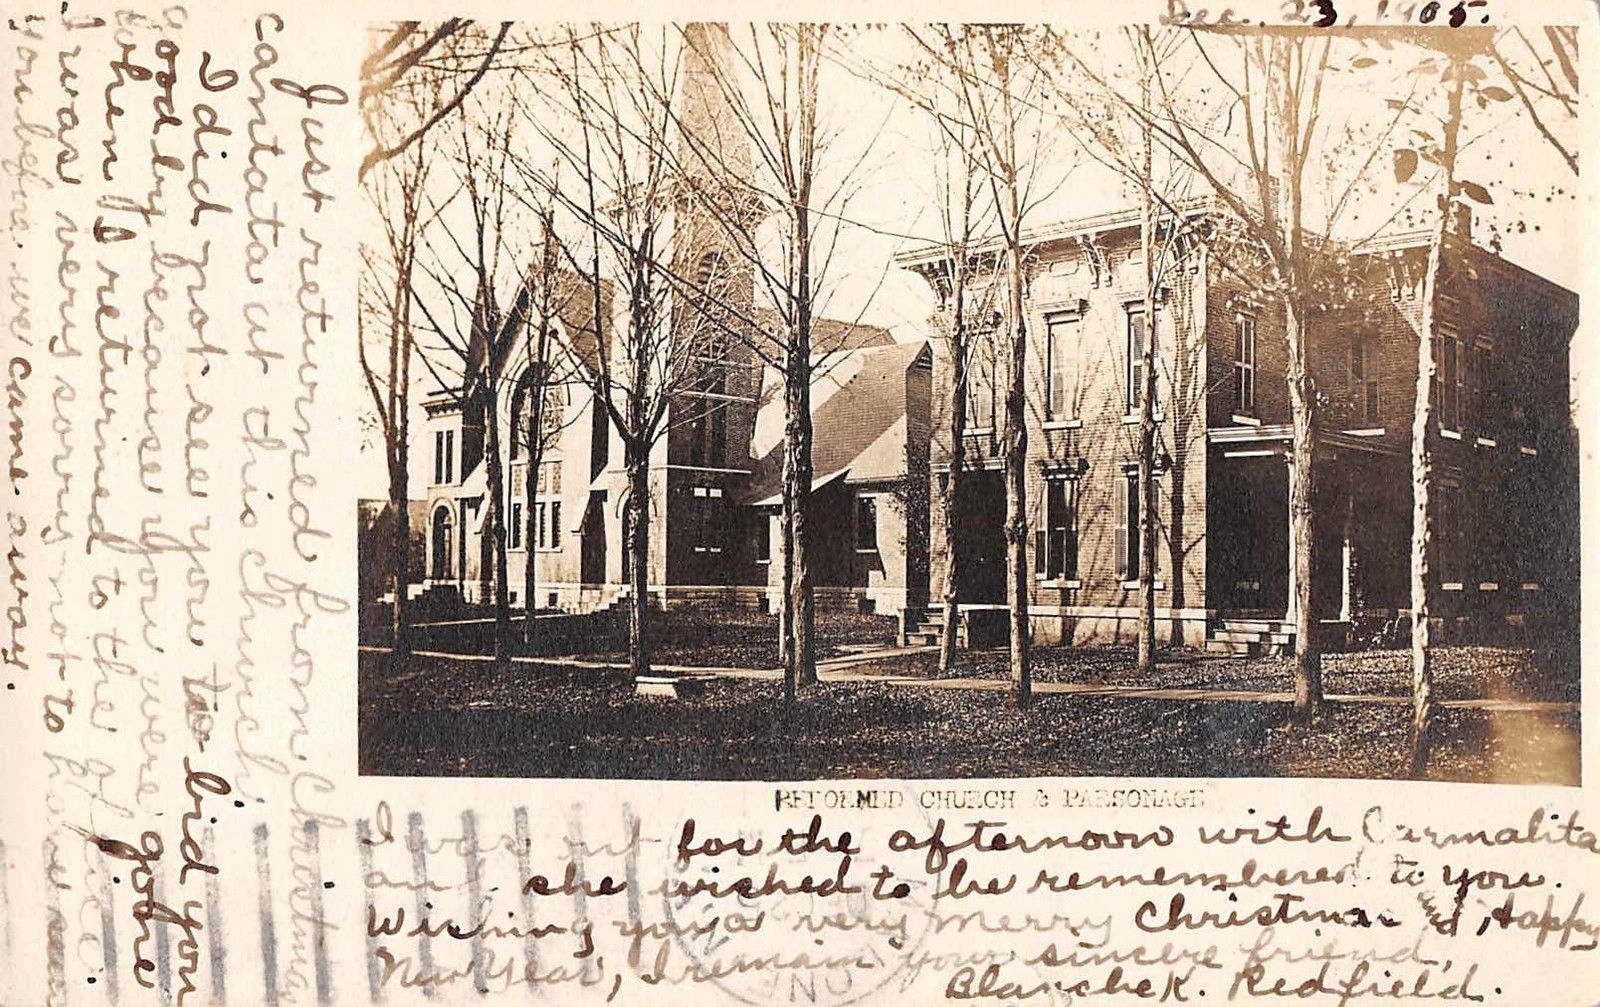 Dec. 23, 1905.
Just returned from Christmas
cantata at this church.
I did not see you to bid you
good by because you were gone
when I returned to the office.
I was very sorry not to have seen
you before we came away.
REFORMED CHURCH & PARSONAGE
I was out for the afternoon with Carmalita
and she wished to be remembered to you.
Wishing you a very Merry Christmas and Happy
New Year, I remain your sincere friend,
Blanche K. Redfield.